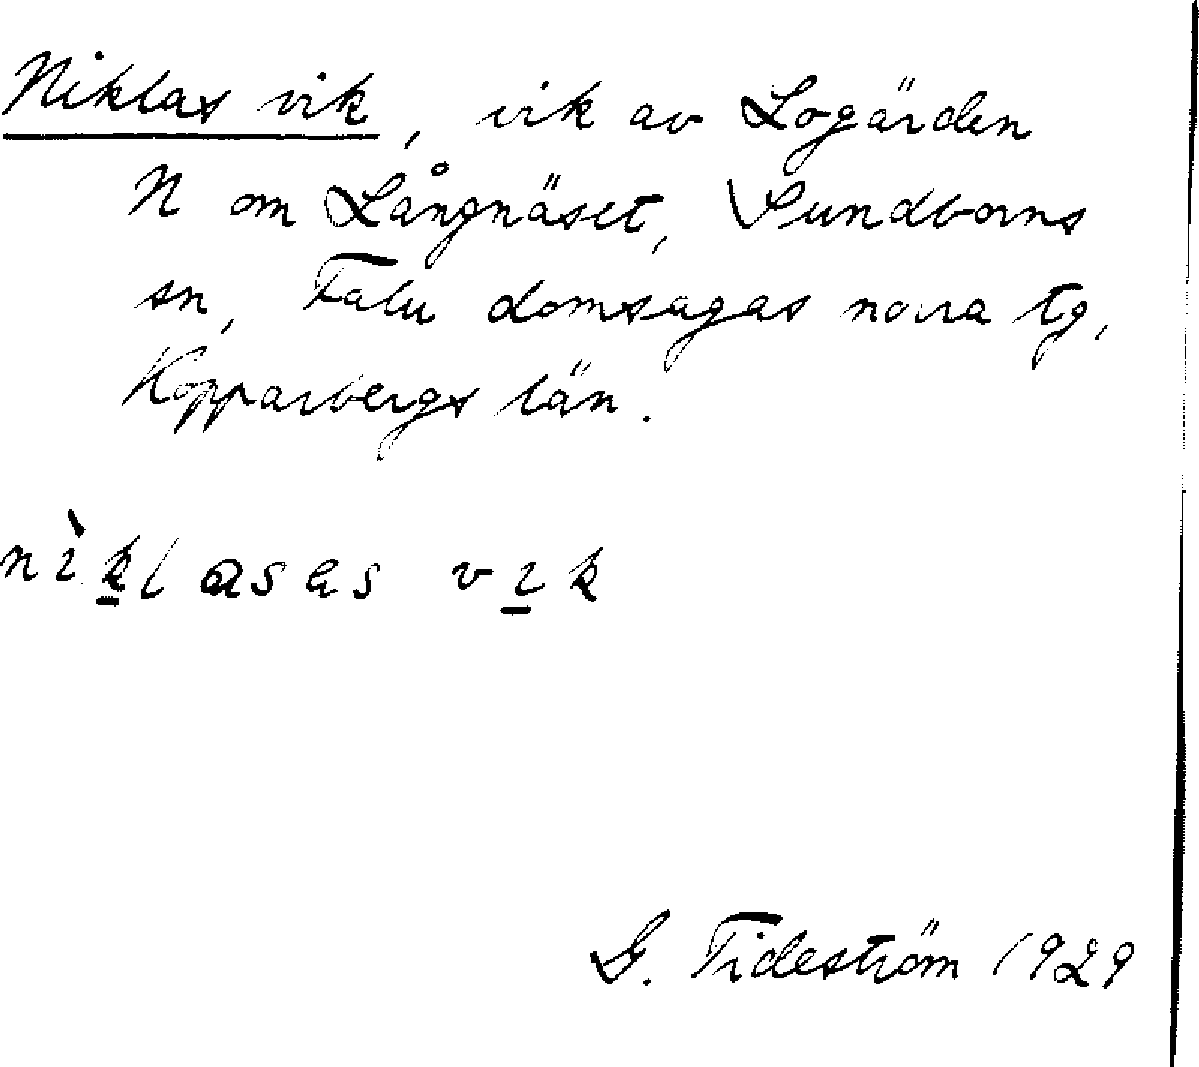 Niklas vik, vik av Logärden
N om Långnäset, Sundborns
sn, Falu domsagas norra tg,
Kopparbergs län.
nìklasas vik
G. Tideström 1929